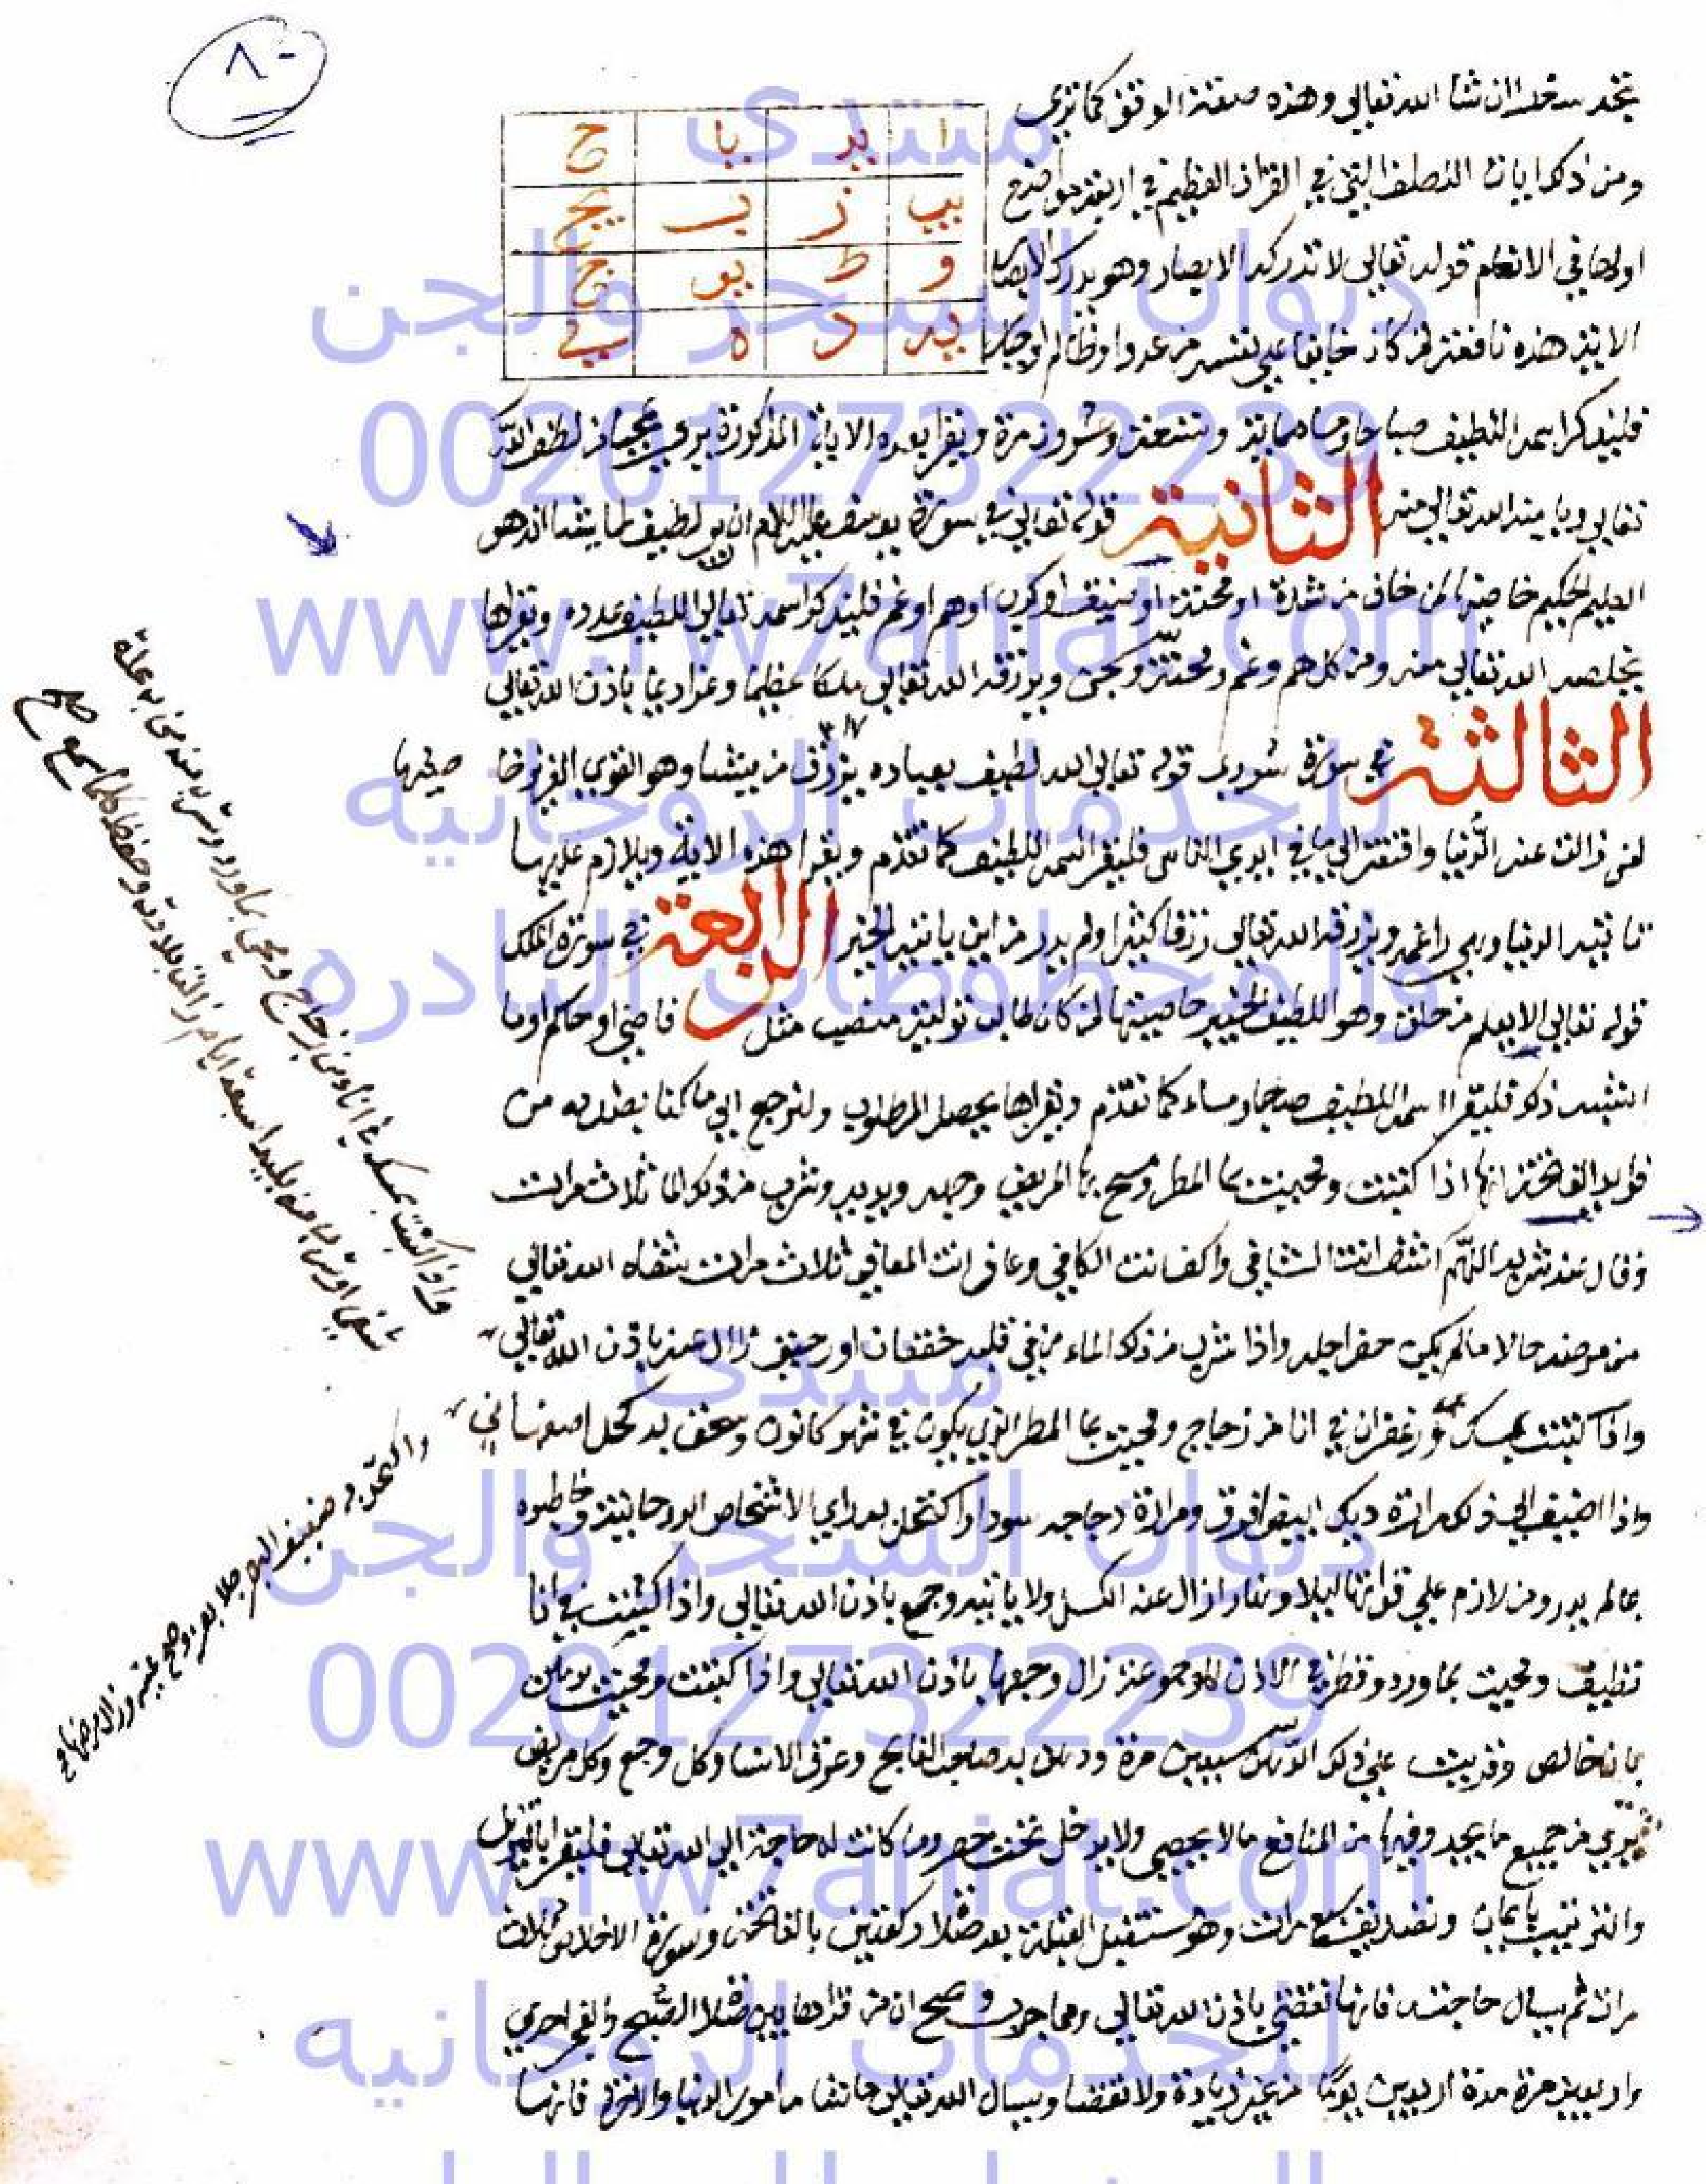 ٨٠
تجد سخدا ان شا الله تعالى وهذه صفة الوفق كما ترى
ا يد يا ح
يب ز ب يج
و ط يو ج
يه د ه ي
ومن ذكر ايات اللطف التي في القران العظيم في اربعة مواضع
اولها في الانعام قوله تعالى لا تدركه الابصار وهو يدرك الابصار
الاية هذه نافعة لمن كان خايفا على نفسه من عدو او ظالم او جبار
فليذكر اسمه اللطيف صباحا ومساء مايتة وتسعة وعشرون مرة ويقرا بعده الاية المذكورة يرى عجبا من لطف الله
تعالى ويامنه الله تعالى منه الثانية قوله تعالى في سورة يوسف عليه السلام ان ربي لطيف لما يشا انه هو
العليم الحكيم خاصيتها لمن خاف من شدة او محنة او ضيق او كرب او هم او غم فليذكر اسمه تعالى اللطيف عدده ويقراها
يخلصه الله تعالى منه ومن كل هم وغم ومحنة وسجن ويرزقه الله تعالى ملكا عظيما وعزا دايما باذن الله تعالى
الثالثة في سورة شورى قوله تعالى الله لطيف بعباده يرزق من يشا وهو القوي العزيز خا صيتها
لمن زالت عنه الدنيا وافتقر الى ما في ايدي الناس فليقرا اسمه اللطيف كما تقدم ويقرا هذه الاية ويلازم عليها
تاتيه الدنيا وهي راغمة ويرزقه الله تعالى رزقا كثيرا ولم يدر من اين ياتيه الخير الرابعة في سورة الملك
قوله تعالى الا يعلم من خلق وهو اللطيف الخبير خاصيتها لمن كان طالب تولية منصب مثل قاضي او حاكم او ما
اشبه ذلك فليقرا اسمه اللطيف صباحا ومساء كما تقدم ويقراها يحصل المطلوب ولنرجع الى ما كنا بصدده من
فوايد الفاتحة انها اذا كتبت ومحيت بما المطر ومسح بها المريض وجهه ويديه وشرب من ذلك الما ثلاث مرات
وقال عند شربه اللهم اشف انت الشافي واكف انت الكافي وعاف انت المعافي ثلاث مرات شفاه الله تعالى
من مرضه حالا ما لم يكن حضر اجله واذا شرب من ذلك الماء من في قلبه خفقان او رجيف زال عنه باذن الله تعالى
واذا كتبت بمسك وزعفران في انا من زجاج ومحيت بما المطر الذي يكون في شهر كانون وسحق به كحل اصفهاني
واذا اضيف الى ذلك مرارة ديك ابيض افرق ومرارة دجاجه سودا واكتحل به راى الاشخاص الروحانية وخاطبوه
بما لم يدر ومن لازم على قراتها ليلا ونهار ازال عنه الكسل ولا ياتيه وجع باذن الله تعالى واذا كتبت في انا
نظيف ومحيت بماورد وقطر في الاذن الموجوعة زال وجعها باذن الله تعالى واذا كتبت ومحيت بدهن
بان خالص وقريت على ذلك الدهن سبعين مرة ودهن به صاحب الفالج وعرق الانسا وكل وجع وكل مريض
يبرى من جميع ما يجد وفيها من المنافع ما لا يحصى ولا يدخل تحت حصر وما كانت له حاجة الى الله تعالى فليقراها بترتيل
والترتيب بايمان وتصديق سبع مرات وهو مستقبل القبلة بعد صلاة ركعتين بالفاتحة وسورة الاخلاص ثلاث
مرات ثم يسال حاجته فانها تقضى باذن الله تعالى ومما جرب وصح ان من قراها بين صلاة الصبح والفجر احدى
واربعين مرة مدة اربعين يوما من غير زيادة ولا نقصا ويسال الله تعالى ما شا ما مور الدنيا والاخرة فانها
واذا كتبت بمسك في انا من زجاج ومحي بماورد وشرب منه من به علة
شفي او شربا منه بليدا سبعة ايام زالت البلادة وحفظ كلما سمع صح
واكتحل به ضعيف البصر جلا بصره وصح عينيه وزال مرضها صح
منتدى
ديوان السحر والجن
00201273222239
www.rw7aniat.com
للخدمات الروحانيه
والمخطوطات النادره
منتدى
ديوان السحر والجن
00201273222239
www.rw7aniat.com
للخدمات الروحانيه